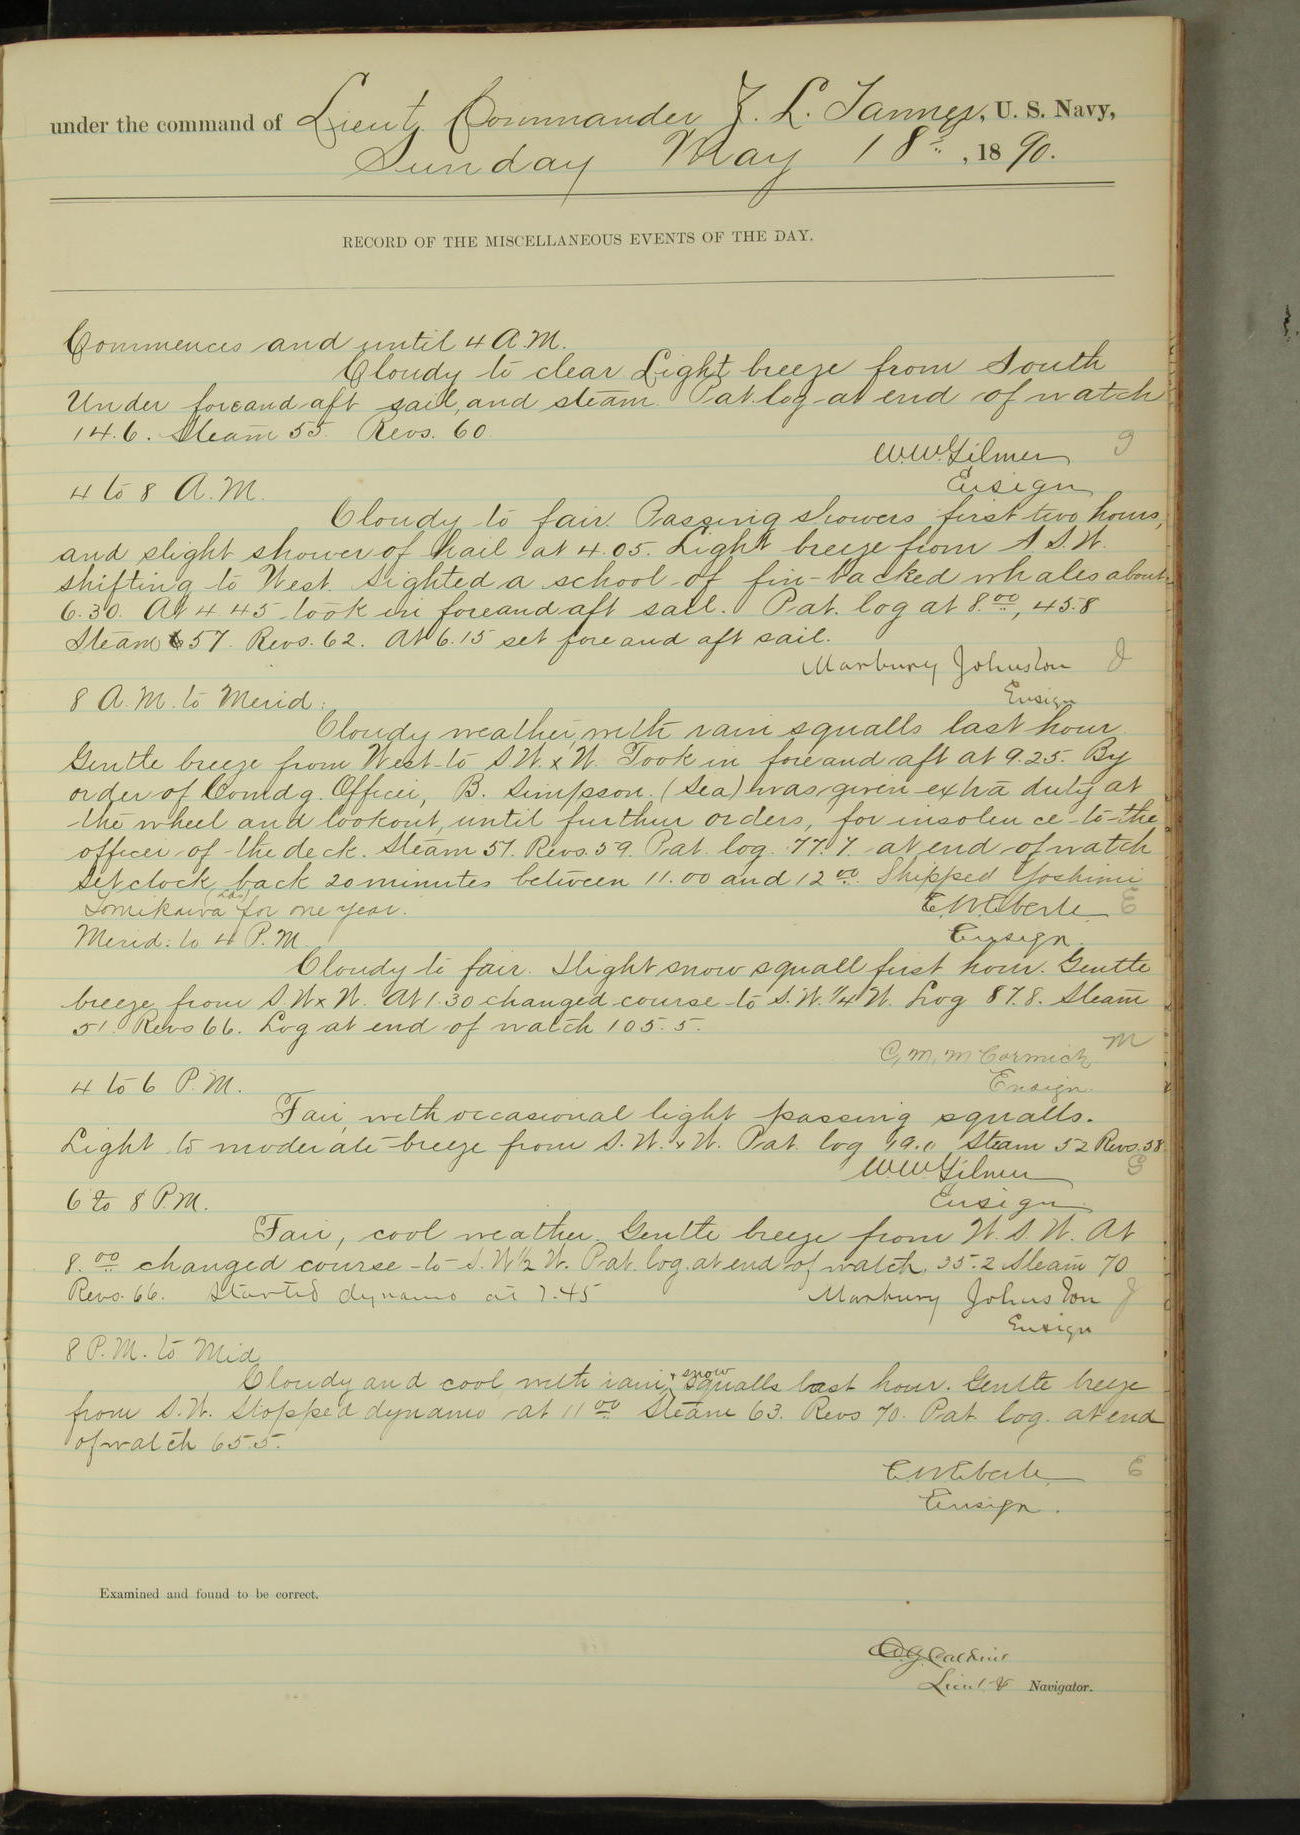 under the command of Lieut. Commander Z. L. Tanner, U. S. Navy,
Sunday May 18th, 1890.
RECORD OF THE MISCELLANEOUS EVENTS OF THE DAY.
Commences and until 4 A.M.
Cloudy to clear Light breeze from South
Under fore and aft sail, and steam. Pat. log at end of watch
14.6. Steam 55 Revs. 60
W.W. Gilmer G
Ensign
4 to 8 A.M.
Cloudy to fair. Passing showers first two hours,
and slight shower of hail at 4.05. Light breeze from S.S.W.
shifting to West. Sighted a school of fin-backed whales about
6.30. At 4 45 took in fore and aft sail. Pat. log at 8.00, 45.8
Steam 57. Revs. 62. At 6.15 set fore and aft sail.
Marbury Johnston J
Ensign
8 A.M. to Merid:
Cloudy weather, with rain squalls last hour.
Gentle breeze from West to S.W. x W. Took in fore and aft at 9.25. By
order of Comdg. Officer, B. Simpson (Sea) was given extra duty at
the wheel and lookout, until further orders, for insolence to the
officer of the deck. Steam 57. Revs. 59. Pat. log. 77.7. at end of watch
Set clock back 20 minutes between 11.00 and 12 00. Shipped Yoshimi
Tomikawa for one year.
E.W. Eberle E
Ensign
Merid: to 4 P.M.
Cloudy to fair. Slight snow squall first hour. Gentle
breeze from S.W x W. At 1.30 changed course to S.W. 1/4 W. Log 87.8. Steam
51. Revs 66. Log at end of watch 105.5.
C. M. McCormick M
Ensign.
4 to 6 P.M.
Fair, with occasional light passing squalls.
Light to moderate breeze from S.W. x W. Pat. log 19.0 Steam 52 Revs. 58
W.W. Gilmer G
Ensign
6 to 8 P.M.
Fair, cool weather. Gentle breeze from W.S.W. At
8.00 changed course to S.W 1/2 W. Pat. log. at end of watch, 35.2 Steam 70
Revs. 66. Started dynamo at 7.45
Marbury Johnston J
Ensign
8 P.M. to Mid
Cloudy and cool with rain & snow squalls last hour. Gentle breeze
from S.W. Stopped dynamo at 11 00 Steam 63. Revs 70. Pat. log. at end
of watch 65.5.
E.W. Eberle E
Ensign.
Examined and found to be correct.
C.G. Calkins
Lieut. & Navigator.